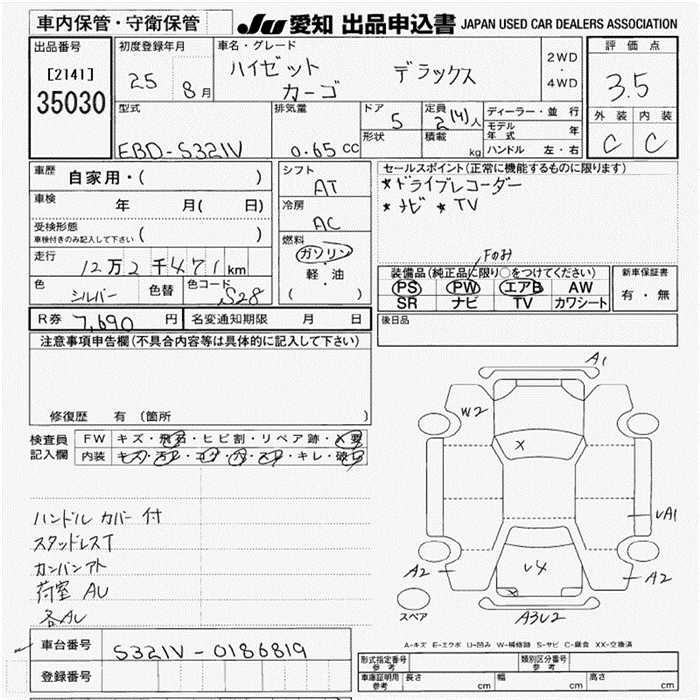 車内保管・守衛保管
JU 愛知 出品申込書 JAPAN USED CAR DEALERS ASSOCIATION
出品番号
[2141]
35030
初度登録年月
25 8月
車名・グレード
ハイゼット
カーゴ
デラックス
2WD
・
4WD
評価点
3.5
外装 内装
C C
型式
EBD-S321V
排気量
0.65 cc
ドア
5
形状
定員
2(4)人
積載
kg
ディーラー・並行
モデル年式 年
ハンドル 左・右
車歴 自家用・( )
車検 年 月( 日)
受検形態
車検付きのみ記入して下さい ( )
走行 12万2千471km
色 シルバー 色替 色コード S28
シフト
AT
冷房
AC
燃料
ガソリン
・
軽・油
( )
セールスポイント(正常に機能するものに限ります)
*ドライブレコーダー
*ナビ *TV
Fのみ
装備品(純正品に限り○をつけてください)
PS PW エアB AW
SR ナビ TV カワシート
新車保証書
有・無
R券 7,690円 名変通知期限 月 日
後日品
注意事項申告欄(不具合内容等は具体的に記入して下さい)
修復歴 有(箇所 )
検査員
記入欄
FW キズ・飛石・ヒビ割・リペア跡・X要
内装
ハンドル カバー 付
スタッドレスT
カンバンアト
荷室 AU
各AU
A1
W2
X
UA1
A2
A2
U4
スペア
A3U2
A-キズ E-エクボ U-凹み W-補修跡 S-サビ C-腐食 XX-交換済
車台番号 S321V-0186819
登録番号
型式指定番号
参考
類別区分番号
参考
車庫証明用
参考
長さ cm 幅 cm 高さ cm